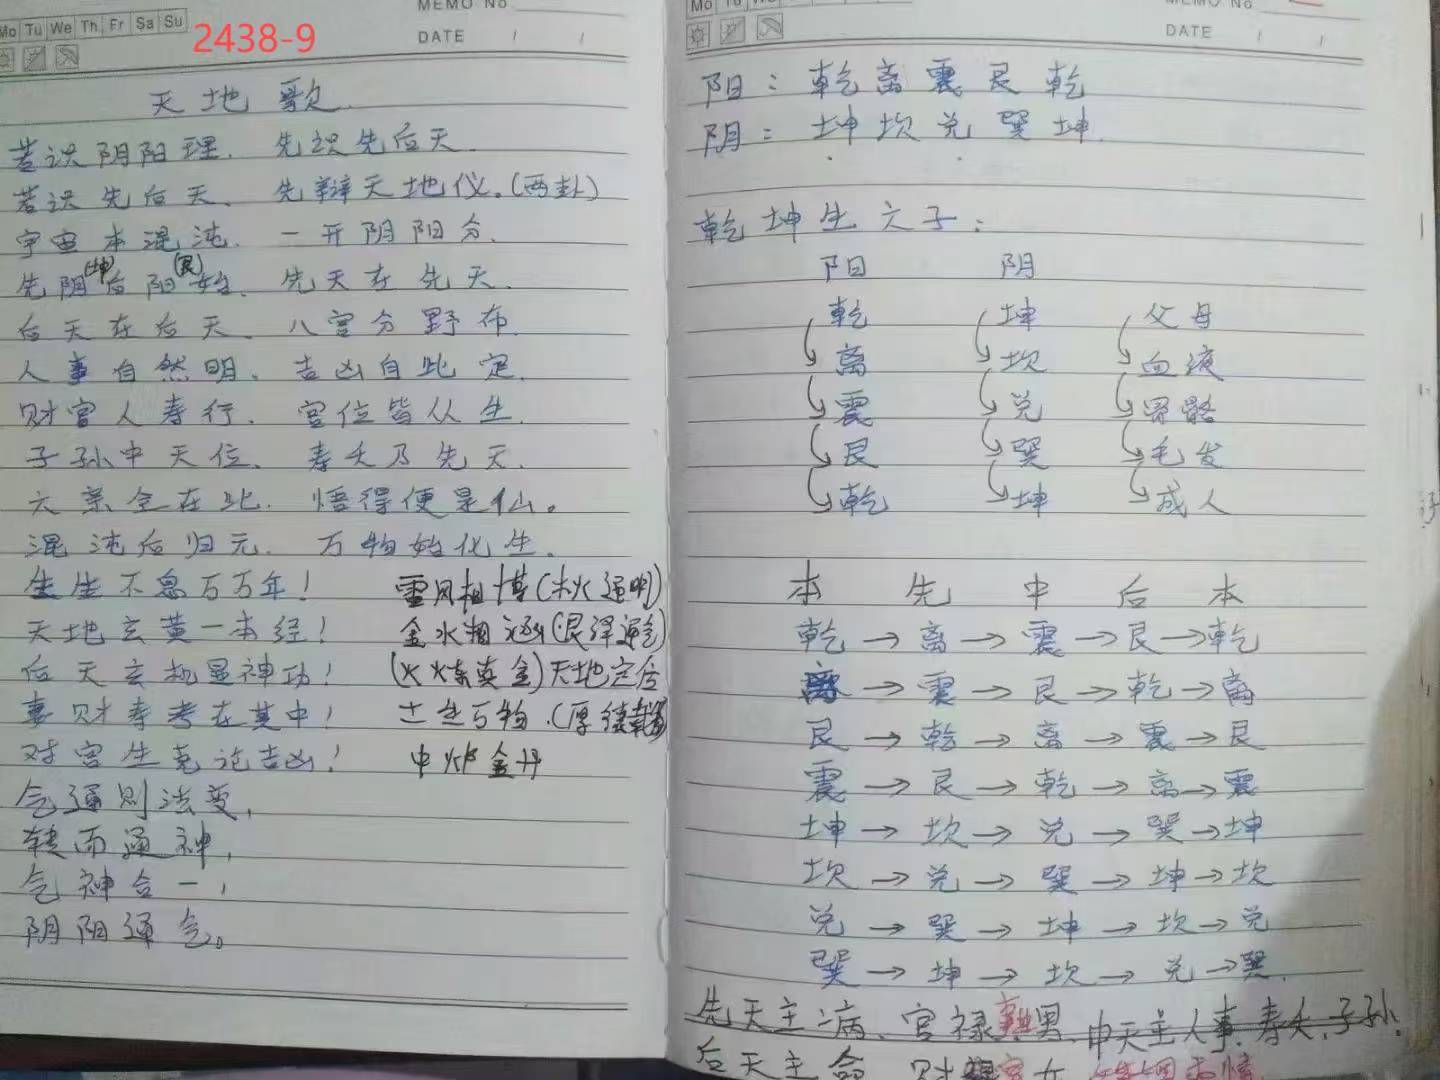 Mo Tu We Th Fr Sa Su
MEMO No
DATE / /
2438-9
天地歌
若识阴阳理、先识先后天
若识先后天、先辩天地仪。(两卦)
宇宙本混沌、一开阴阳分、
先阴(坤)后阳(艮)始、先天在先天、
后天在后天、八宫分野布、
人事自然明、吉凶自此定、
财官人寿行、宫位皆从生、
子孙中天位、寿夭乃先天、
六亲全在此、悟得便是仙。
混沌后归元、万物始化生、
生生不息百万年! 雷风相博(木火通明)
天地玄黄一本经! 金水相涵(艮泽通乾)
后天玄机显神功! (火炼真金)天地定位
妻财寿考在其中! 土生万物.(厚德载物)
对宫生克论吉凶! 中炉金丹
气通则法变,
转而通神,
气神合一,
阴阳通气。
Mo Tu We Th Fr Sa Su
MEMO No
DATE / /
阳:乾离震艮乾
阴:坤坎兑巽坤.
乾坤生六子:
阳 阴
乾 坤 父母
离 坎 血液
震 兑 骨骼
艮 巽 毛发
乾 坤 成人
本 先 中 后 本
乾→离→震→艮→乾
离→震→艮→乾→离
艮→乾→离→震→艮
震→艮→乾→离→震
坤→坎→兑→巽→坤
坎→兑→巽→坤→坎
兑→巽→坤→坎→兑
巽→坤→坎→兑→巽.
先天主病、官禄 男、中天主人事、寿夭、子孙.
后天主命 财 官女